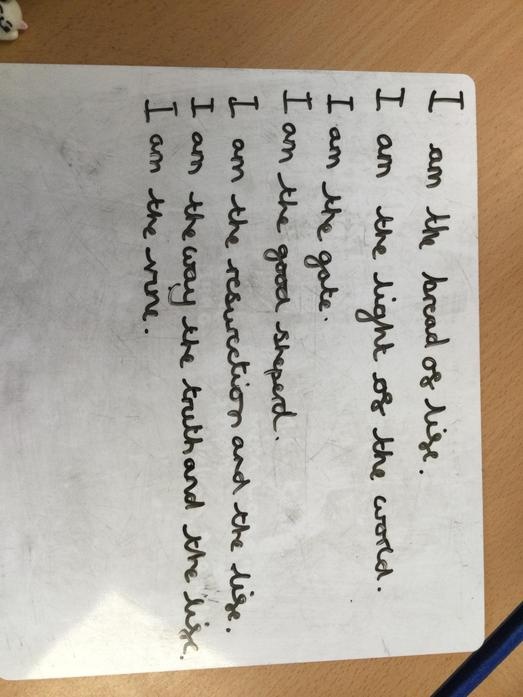 I am the bread of life.
I am the light of the world.
I am the gate.
I am the good sheperd.
I am the resurection and the life.
I am the way the truth and the life.
I am the vine.